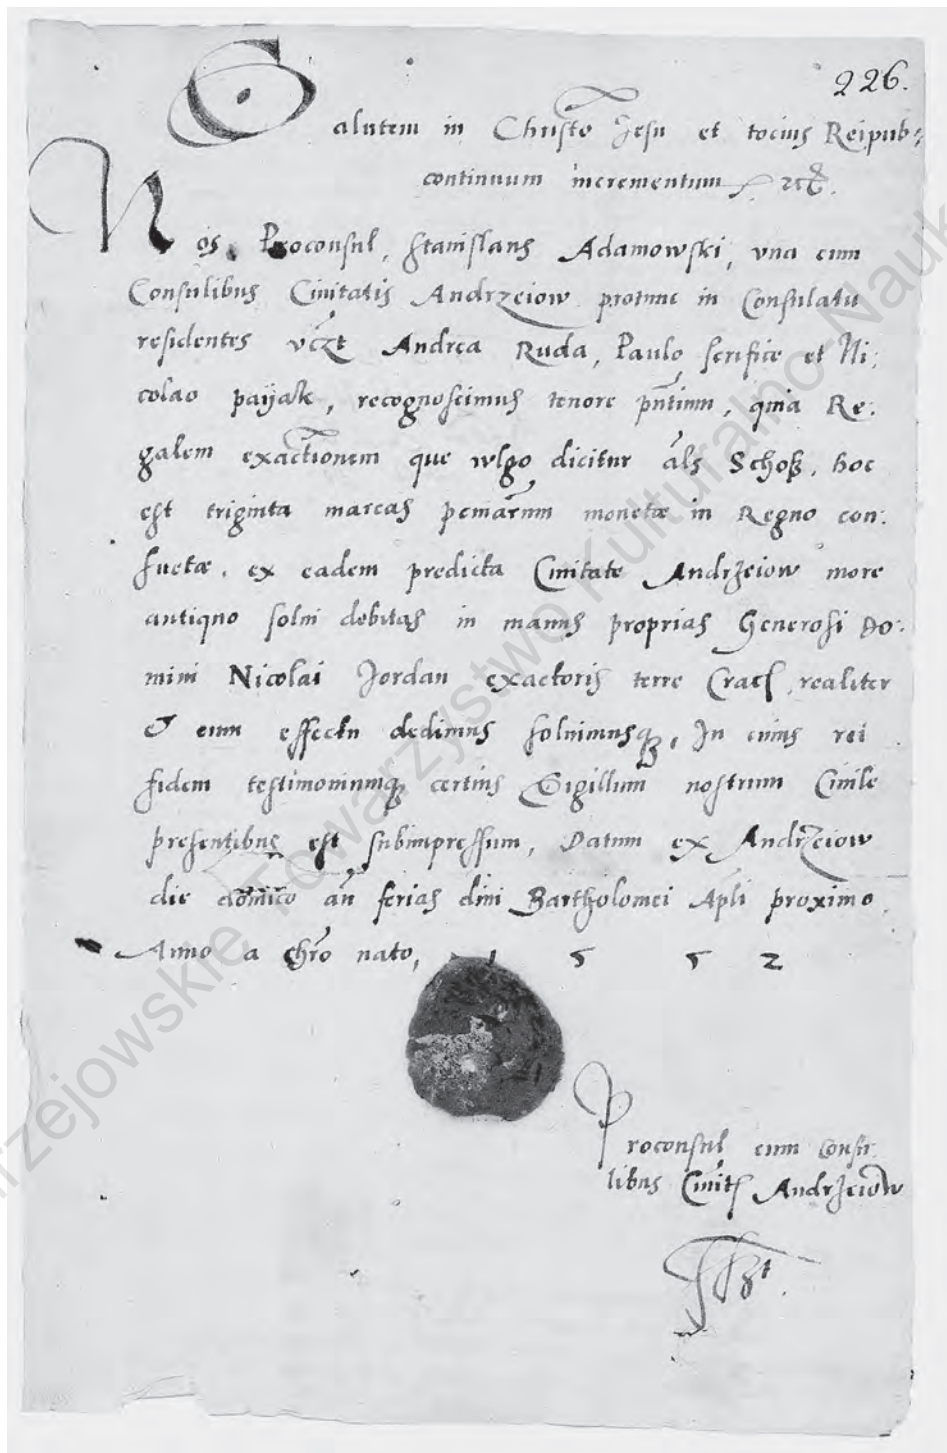 226.
Salutem in Christo Jesu et tocius Reipub:
continuum incrementum, etc.
Nos Proconsul, Stanislaus Adamowski, vna cum
Consulibus Ciuitatis Andrzeiow protunc in Consulatu
residentes vczt Andrea Ruda, Paulo serifice et Ni:
colao paijak, recognoscimus tenore pntium, quia Re:
galem exactionem que wlgo dicitur als Schoß, hoc
est triginta marcas peniarum monetæ in Regno con:
suetæ, ex eadem predicta Ciuitate Andrzeiow more
antiquo solui debitas in manus proprias Generosi Do:
mini Nicolai Jordan exactoris terre Crac, realiter
& cum effectu dedimus soluimusq, In cuius rei
fidem testimoniumq certius Sigillum nostrum Ciuile
presentibus est subimpressum, Datum ex Andrzeiow
die domico an ferias diui Bartholomei Apli proximo
Anno a Chro nato, 1 5 5 2
Proconsul cum Consu
libus Ciuit Andrzeiow
Andrzejowskie Towarzystwo Kulturalno-Nauk